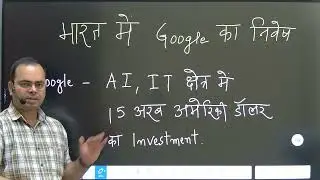 भारत में Google का निवेश
Google - AI, IT क्षेत्र में
15 अरब अमेरिकी डॉलर
का Investment.